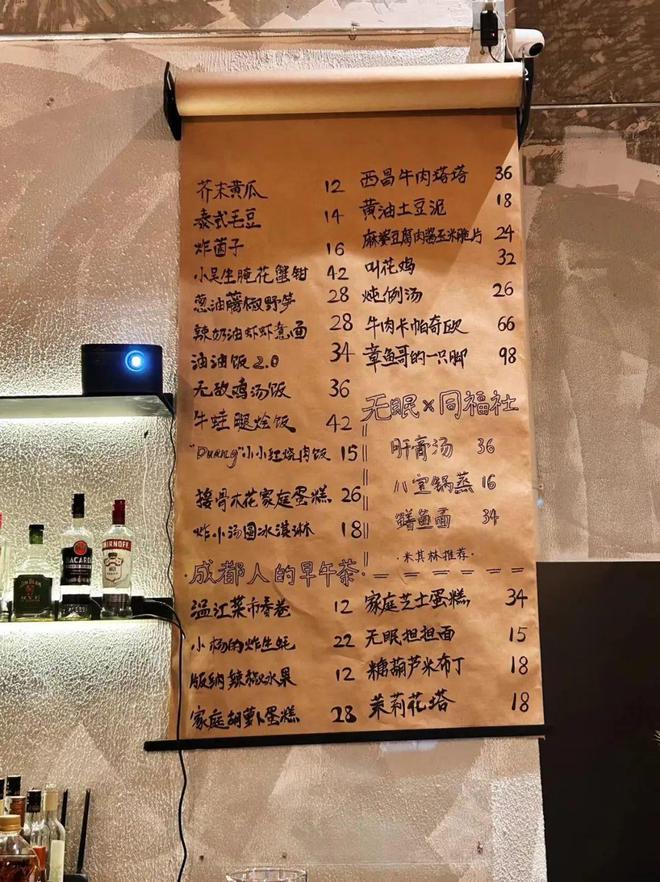 芥末黄瓜 12
泰式毛豆 14
炸菌子 16
小吴生腌花蟹钳 42
葱油藤椒野笋 28
辣奶油虾虾意面 28
油油饭2.0 34
无敌鸡汤饭 36
牛蛙腿烩饭 42
"Duang"小小红烧肉饭 15
接骨木花家庭蛋糕 26
炸小汤圆冰淇淋 18
西昌牛肉塔塔 36
黄油土豆泥 18
麻婆豆腐肉酱玉米脆片 24
叫花鸡 32
炖例汤 26
牛肉卡帕奇欧 66
章鱼哥的一只脚 98
无眠×同福社
肝膏汤 36
川宣锅蒸 16
鳝鱼面 34
·米其林推荐·
·成都人的早午茶·
温江菜市春卷 12
小杨的炸生蚝 22
版纳辣椒水果 12
家庭胡萝卜蛋糕 28
家庭芝士蛋糕 34
无眠担担面 15
糖葫芦米布丁 18
茉莉花塔 18
BACARDI
SMIRNOFF